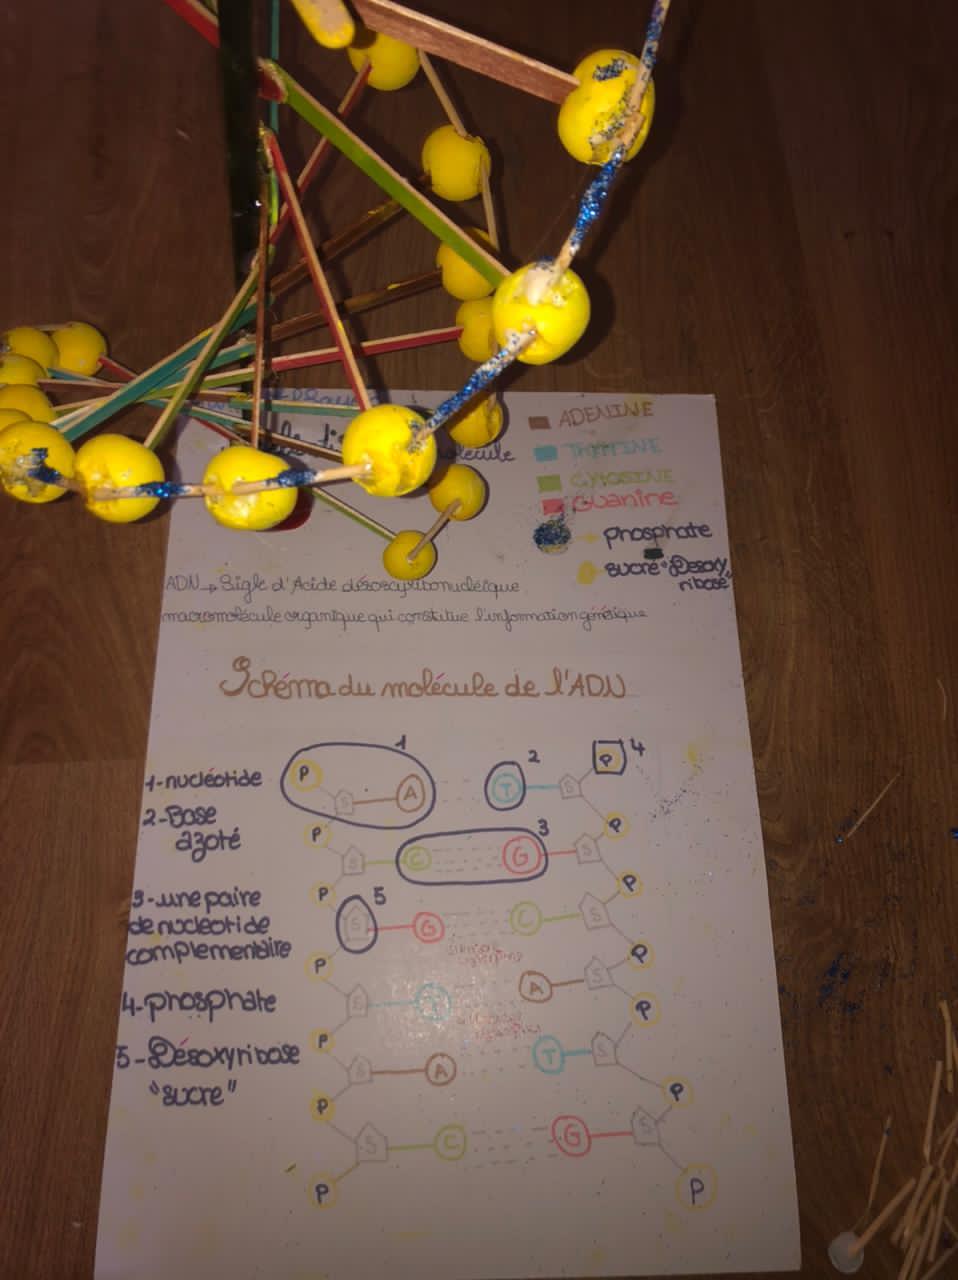 molécule
ADENINE
THYMINE
CYTOSINE
Guanine
phosphate
sucre "Desoxy
ribose"
ADN → Sigle d'Acide désoxyribonucléique
macromolécule organique qui constitue l'information génétique
Schéma du molécule de l'ADN
1-nucléotide
2-Base
azoté
3-une paire
de nucleotide
complementaire
4-phosphate
5-Désoxyribose
"sucre"
1
P
S
A
2
T
S
P
4
P
S
C
3
G
S
P
P
5
S
G
C
S
P
P
S
T
A
S
P
P
S
A
T
S
P
P
S
C
G
S
P
P
P